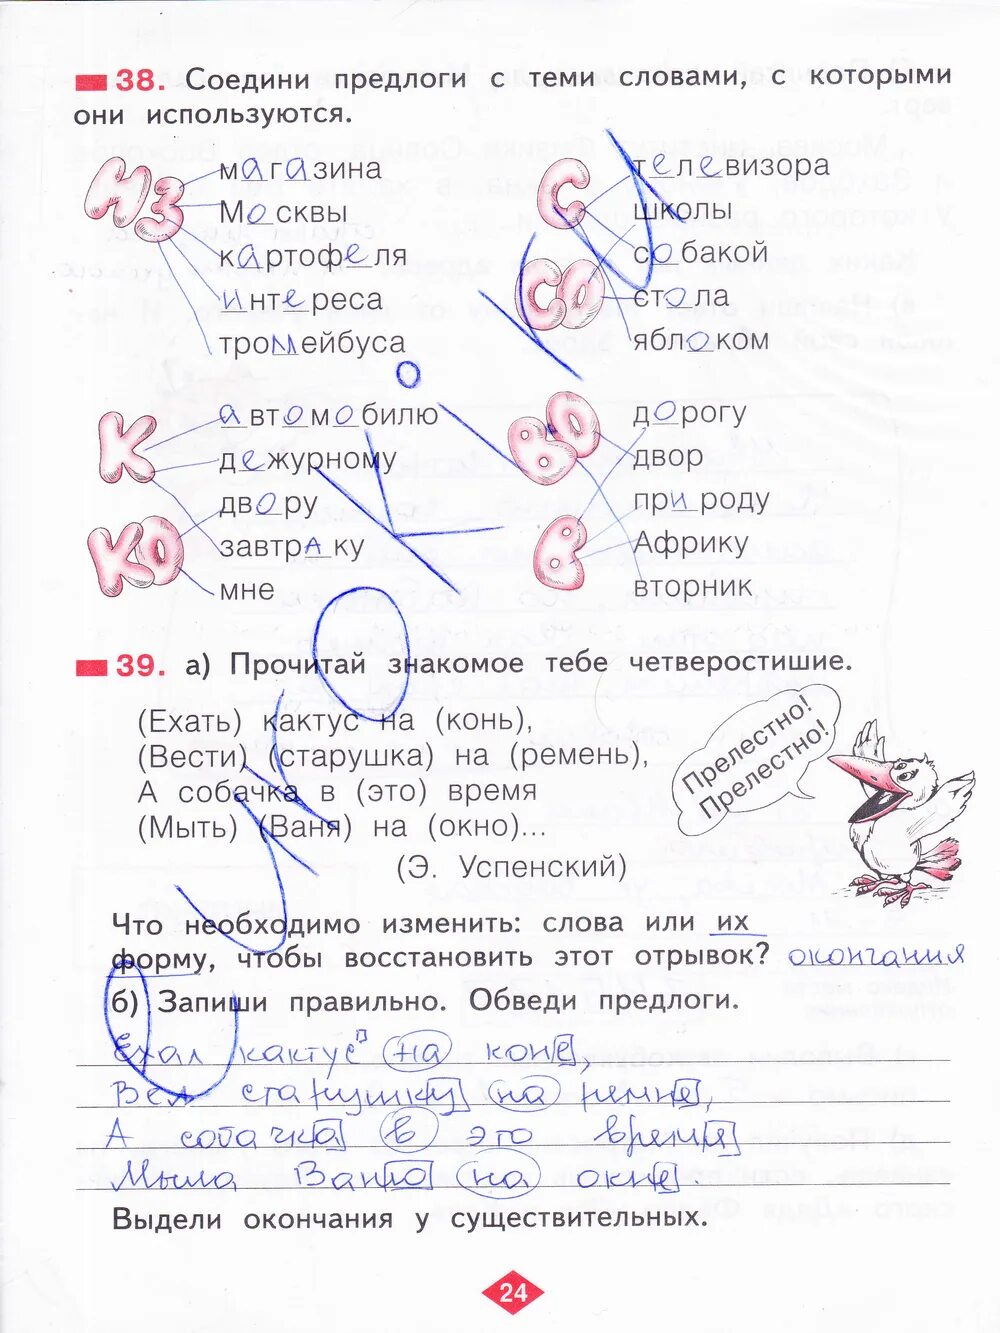 38. Соедини предлоги с теми словами, с которыми
они используются.
ИЗ
магазина
Москвы
картофеля
интереса
тромейбуса
С
СО
телевизора
школы
собакой
стола
яблоком
К
КО
автомобилю
дежурному
двору
завтраку
мне
ВО
В
дорогу
двор
природу
Африку
вторник
39. а) Прочитай знакомое тебе четверостишие.
(Ехать) кактус на (конь),
(Вести) (старушка) на (ремень),
А собачка в (это) время
(Мыть) (Ваня) на (окно)...
(Э. Успенский)
Прелестно!
Прелестно!
Что необходимо изменить: слова или их
форму, чтобы восстановить этот отрывок? окончания
б) Запиши правильно. Обведи предлоги.
Ехал кактус на коне,
Вел старушку на ремне,
А собачка в это время
Мыла Ваню на окне.
Выдели окончания у существительных.
24